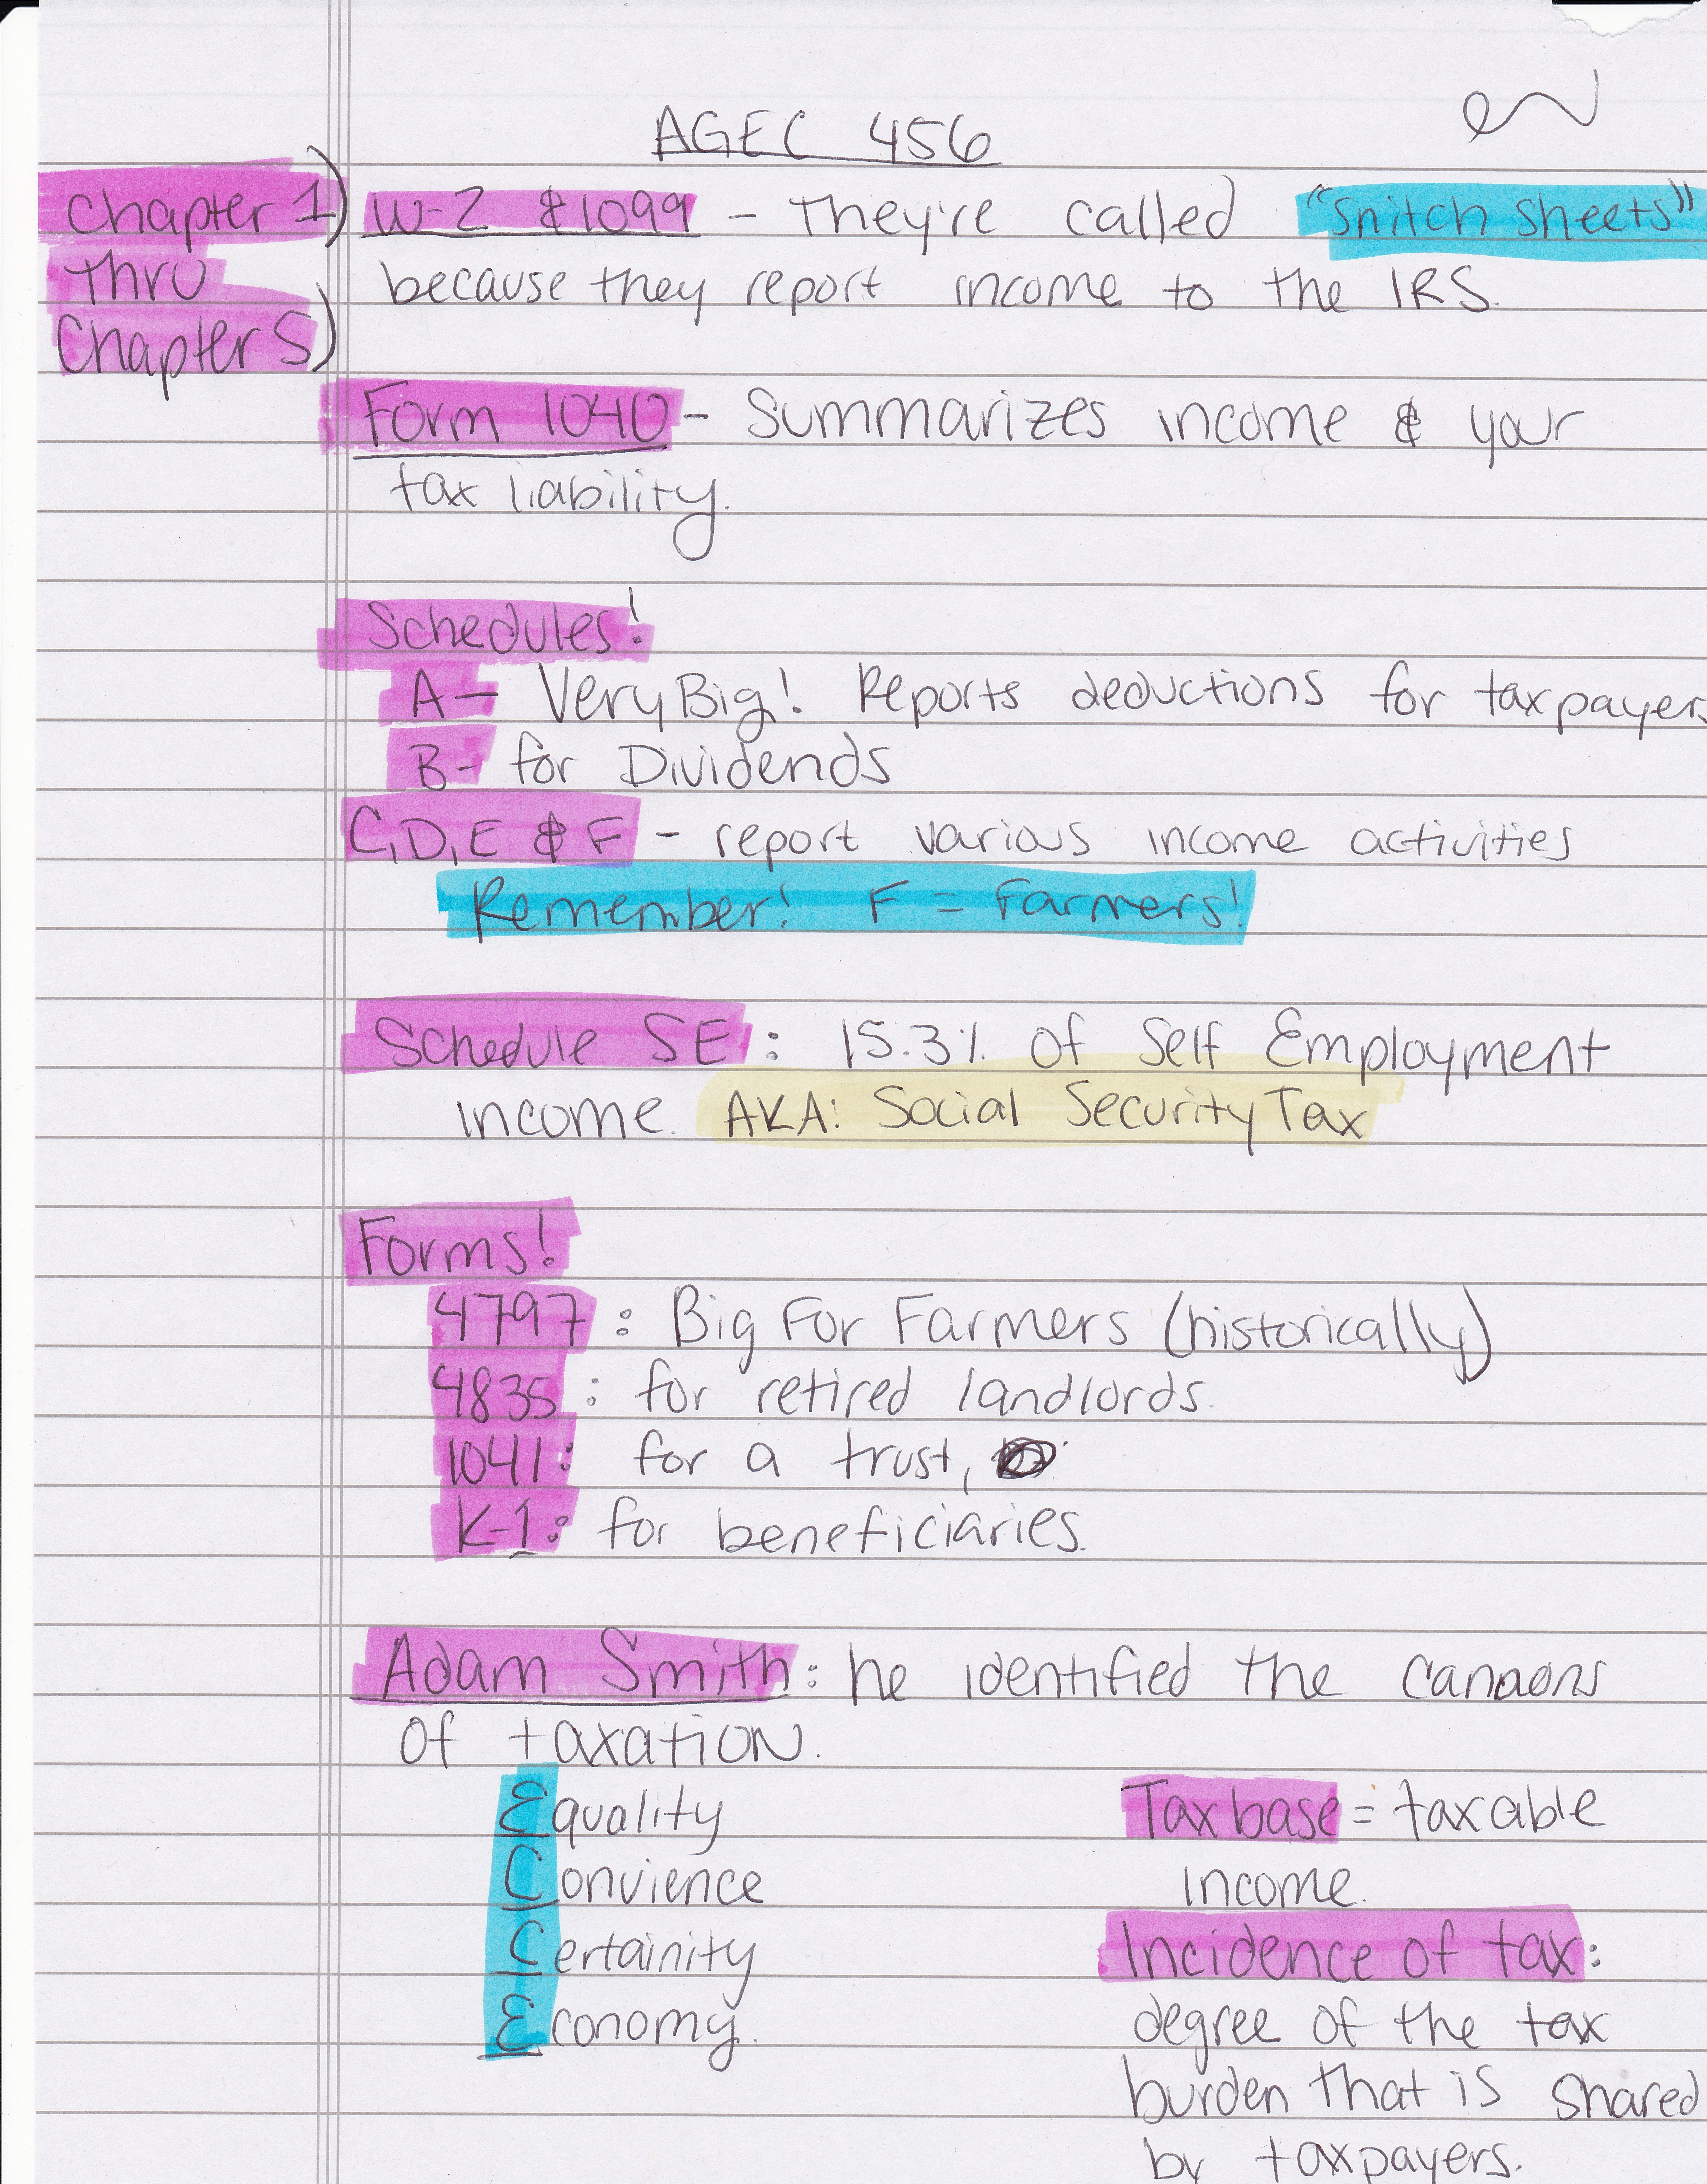 AGEC 456
Chapter 1)
thru
Chapter 5)
W-2 & 1099 - They're called "Snitch Sheets"
because they report income to the IRS.
Form 1040 - Summarizes income & your
tax liability.
Schedules!
A - Very Big! Reports deductions for taxpayers
B - for Dividends
C, D, E & F - report various income activities
Remember! F = Farmers!
Schedule SE : 15.3% of Self Employment
income. AKA: Social Security Tax
Forms!
4797 : Big For Farmers (historically)
4835 : for retired landlords.
1041: for a trust,
K-1: for beneficiaries.
Adam Smith: he identified the cannons
of taxation.
Equality
Convience
Certainity
Economy.
Tax base = taxable
income.
Incidence of tax:
degree of the tax
burden that is shared
by taxpayers.